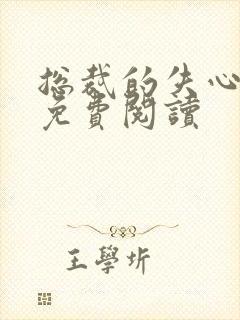 总裁的失心
免費閱讀
王學圻